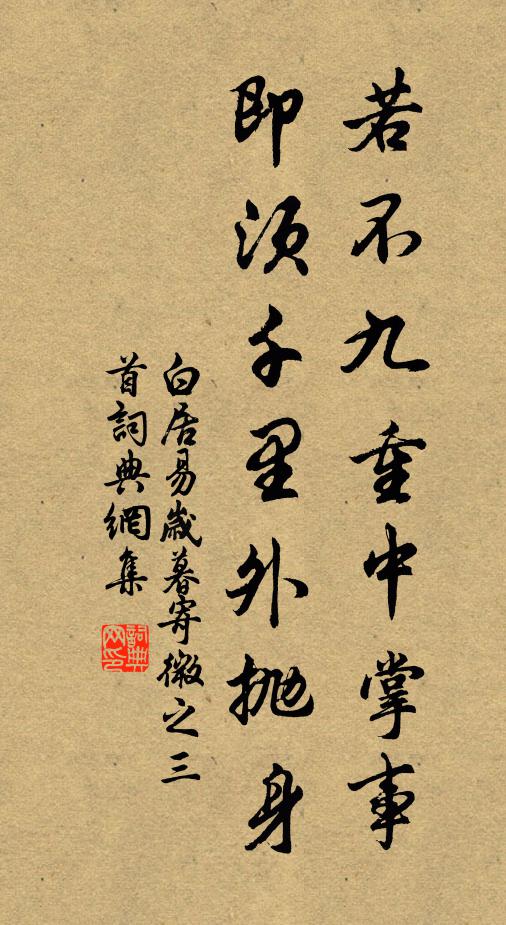 若不九重中掌事
即須千里外抛身
白居易歲暮寄微之三
首詞典網集
詞典
网印